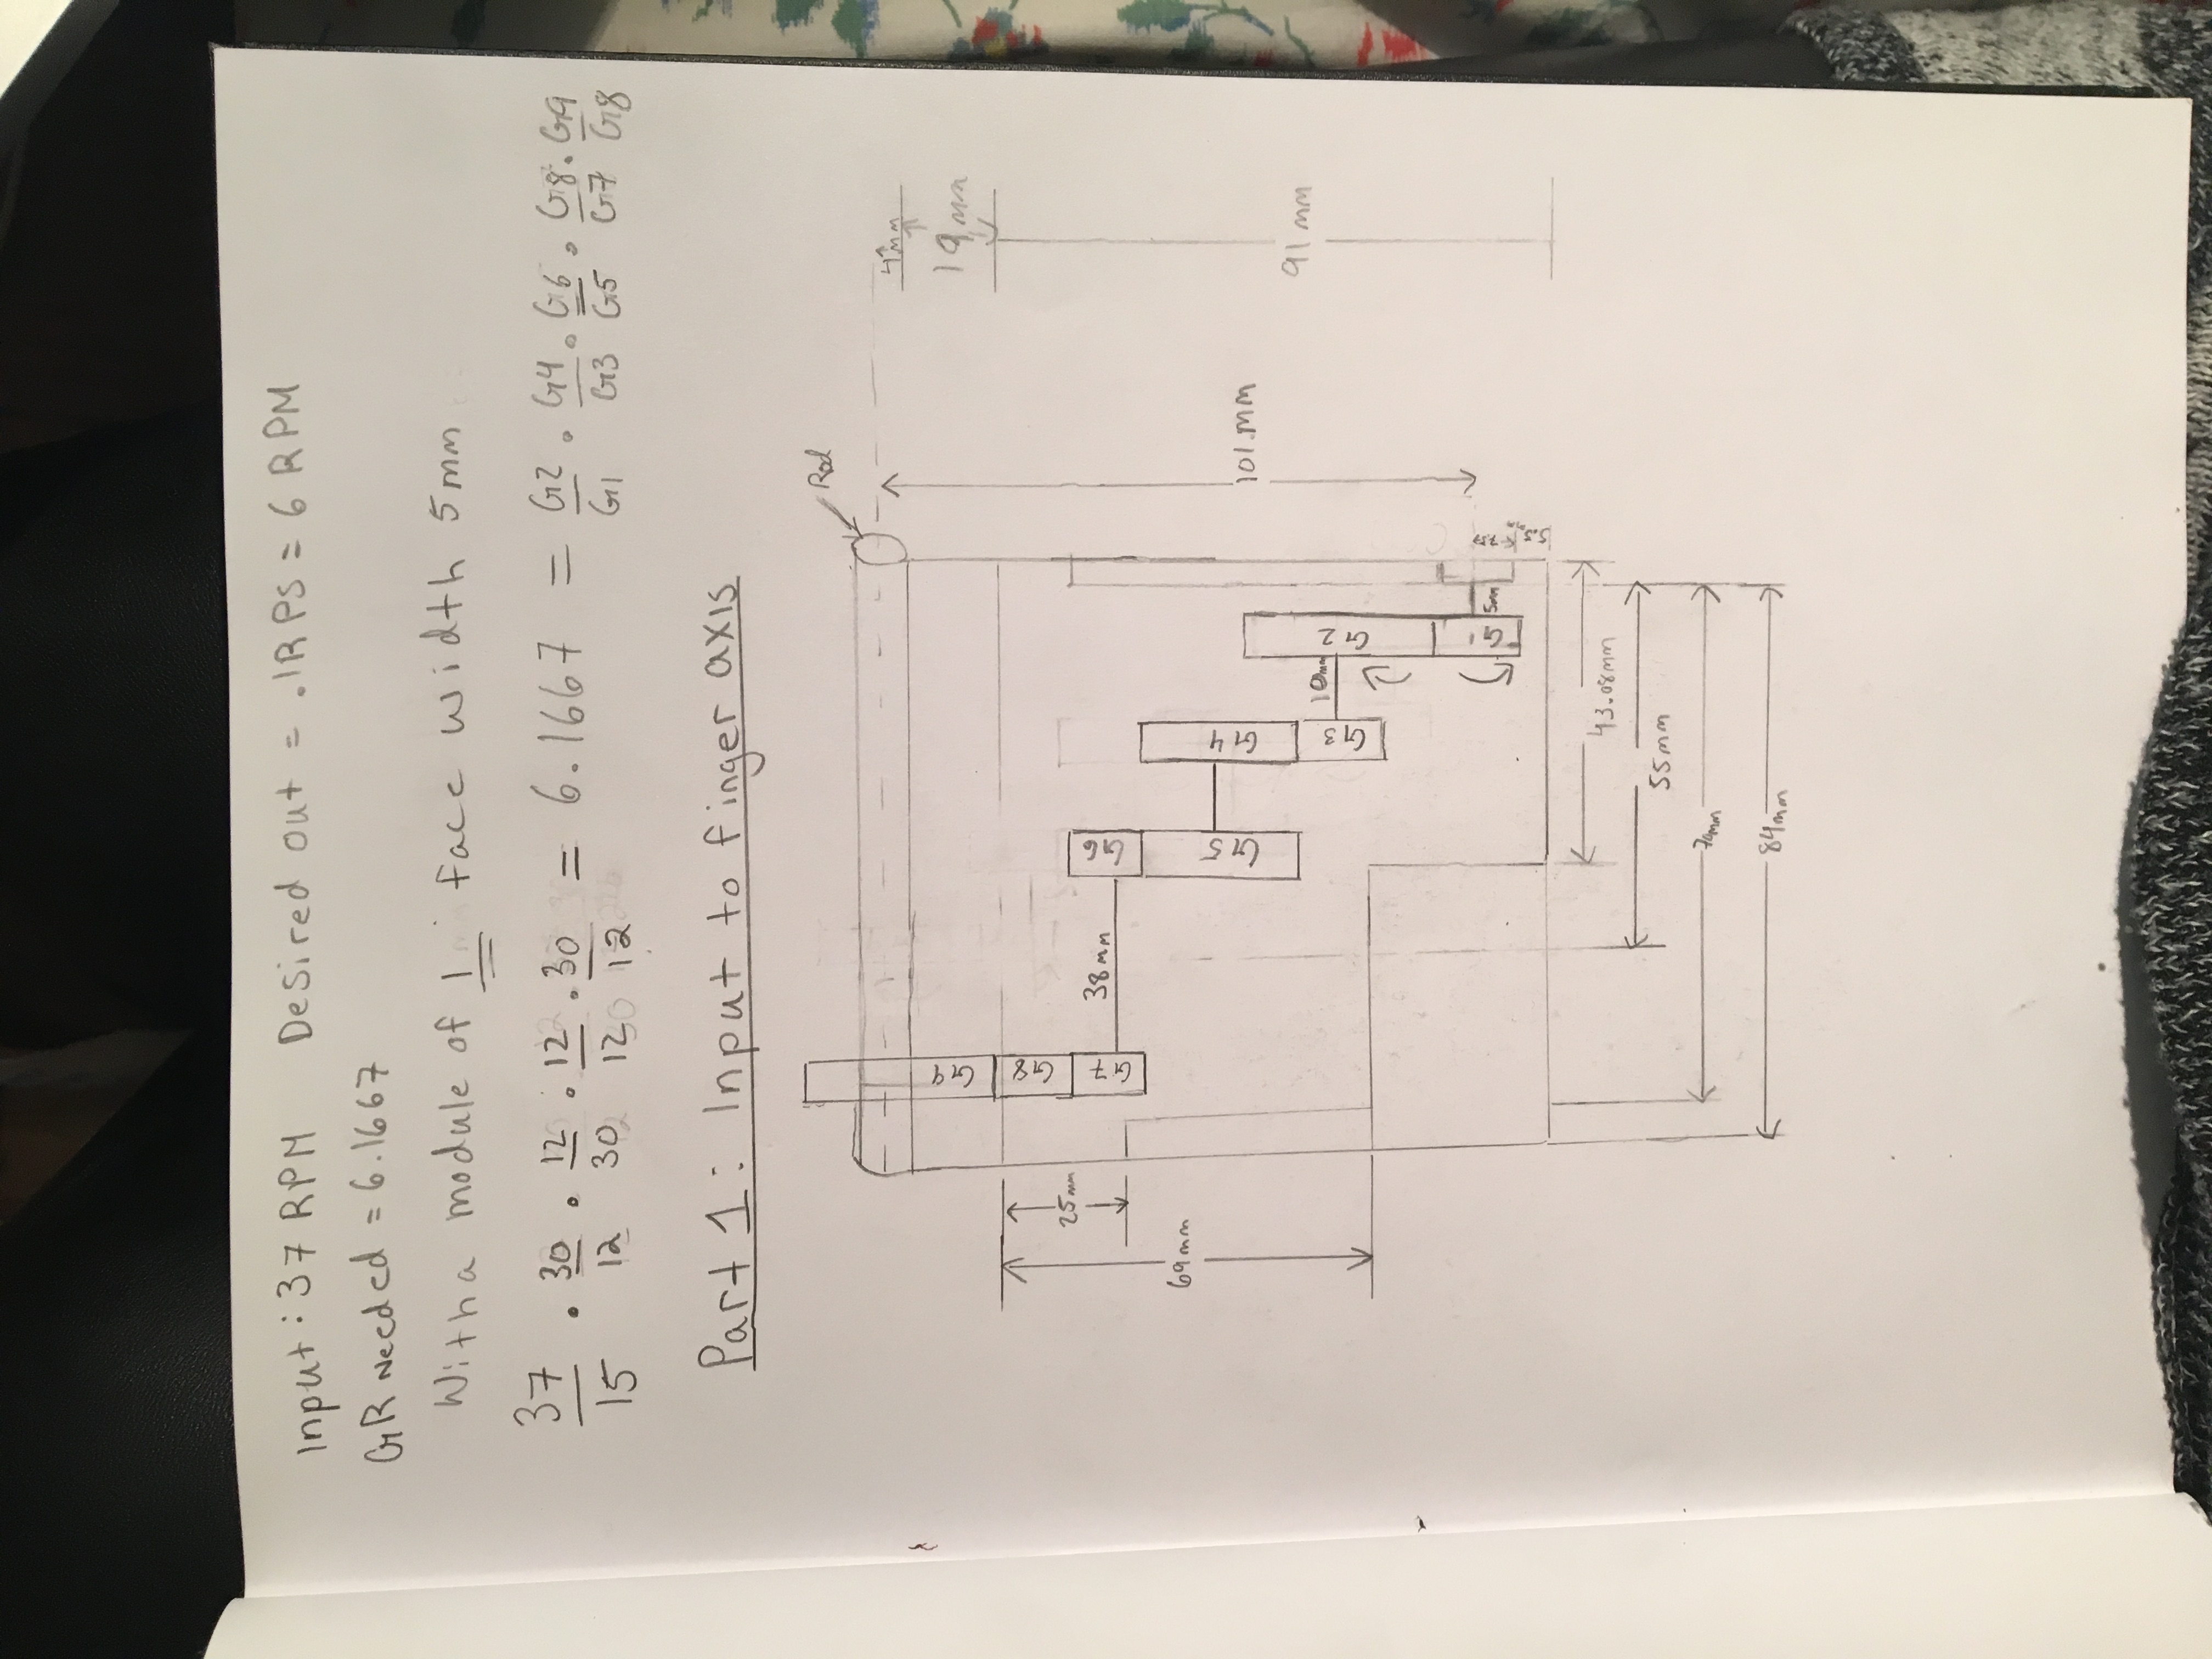 Input: 37 RPM Desired out = .1RPS = 6 RPM
GR Needed = 6.1667
With a module of 1 face width 5mm
37/15 · 30/12 · 12/30 · 12/12 · 30/12 = 6.1667 = G2/G1 · G4/G3 · G6/G5 · G8/G7 · G9/G8
Part 1: Input to finger axis
Rod
4mm
19mm
G9
G8
25mm
G7
38mm
G6
69mm
G5
G4
101.mm
91mm
G3
10mm
G2
G1
5mm
5.5mm
43.08mm
55mm
70mm
84mm